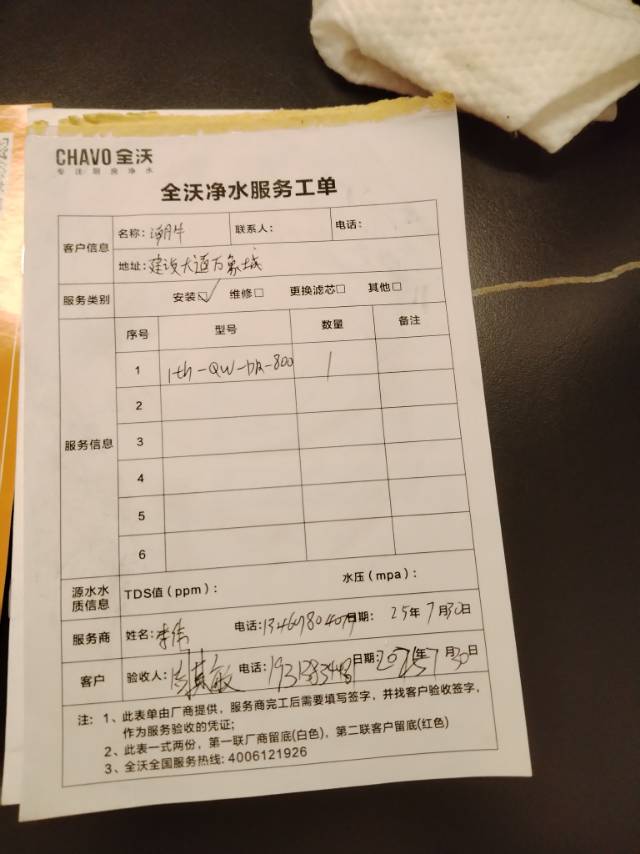 CHAVO 全沃
专注厨房净水
全沃净水服务工单
客户信息
名称： 联系人： 电话：
地址：建设大道万象城
服务类别 安装☑ 维修□ 更换滤芯□ 其他□
服务信息
序号 型号 数量 备注
1 1
2
3
4
5
6
源水水质信息 TDS值（ppm）： 水压（mpa）：
服务商 姓名：李伟 电话： 日期： 25年7月30日
客户 验收人： 电话： 日期：2025年7月30日
注：1、此表单由厂商提供，服务商完工后需要填写签字，并找客户验收签字，
作为服务验收的凭证；
2、此表一式两份，第一联厂商留底(白色)，第二联客户留底(红色)
3、全沃全国服务热线: 4006121926